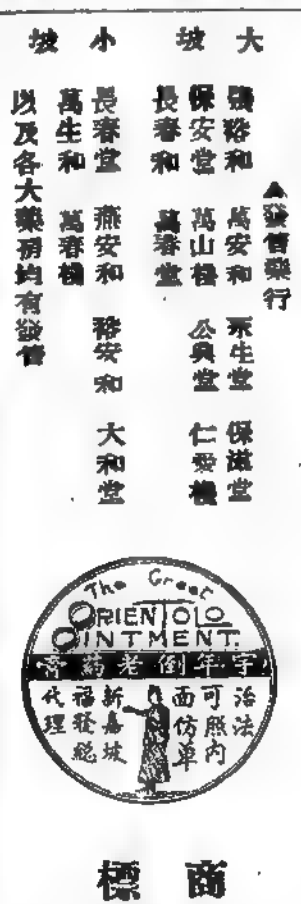 ▲發售藥行
大坡
裕和 萬安和 永生堂 保滋堂
保安堂 萬山棧 公興堂 仁愛棧
長春和 萬春堂
小坡
長春堂 燕安和 裕安和 大和堂
萬生和 萬春棧
以及各大藥房均有發售
The Great
ORIENTOLO
OINTMENT
字年倒老葯膏
治法
可照內
面仿单
新嘉坡
福發総
代理
商標